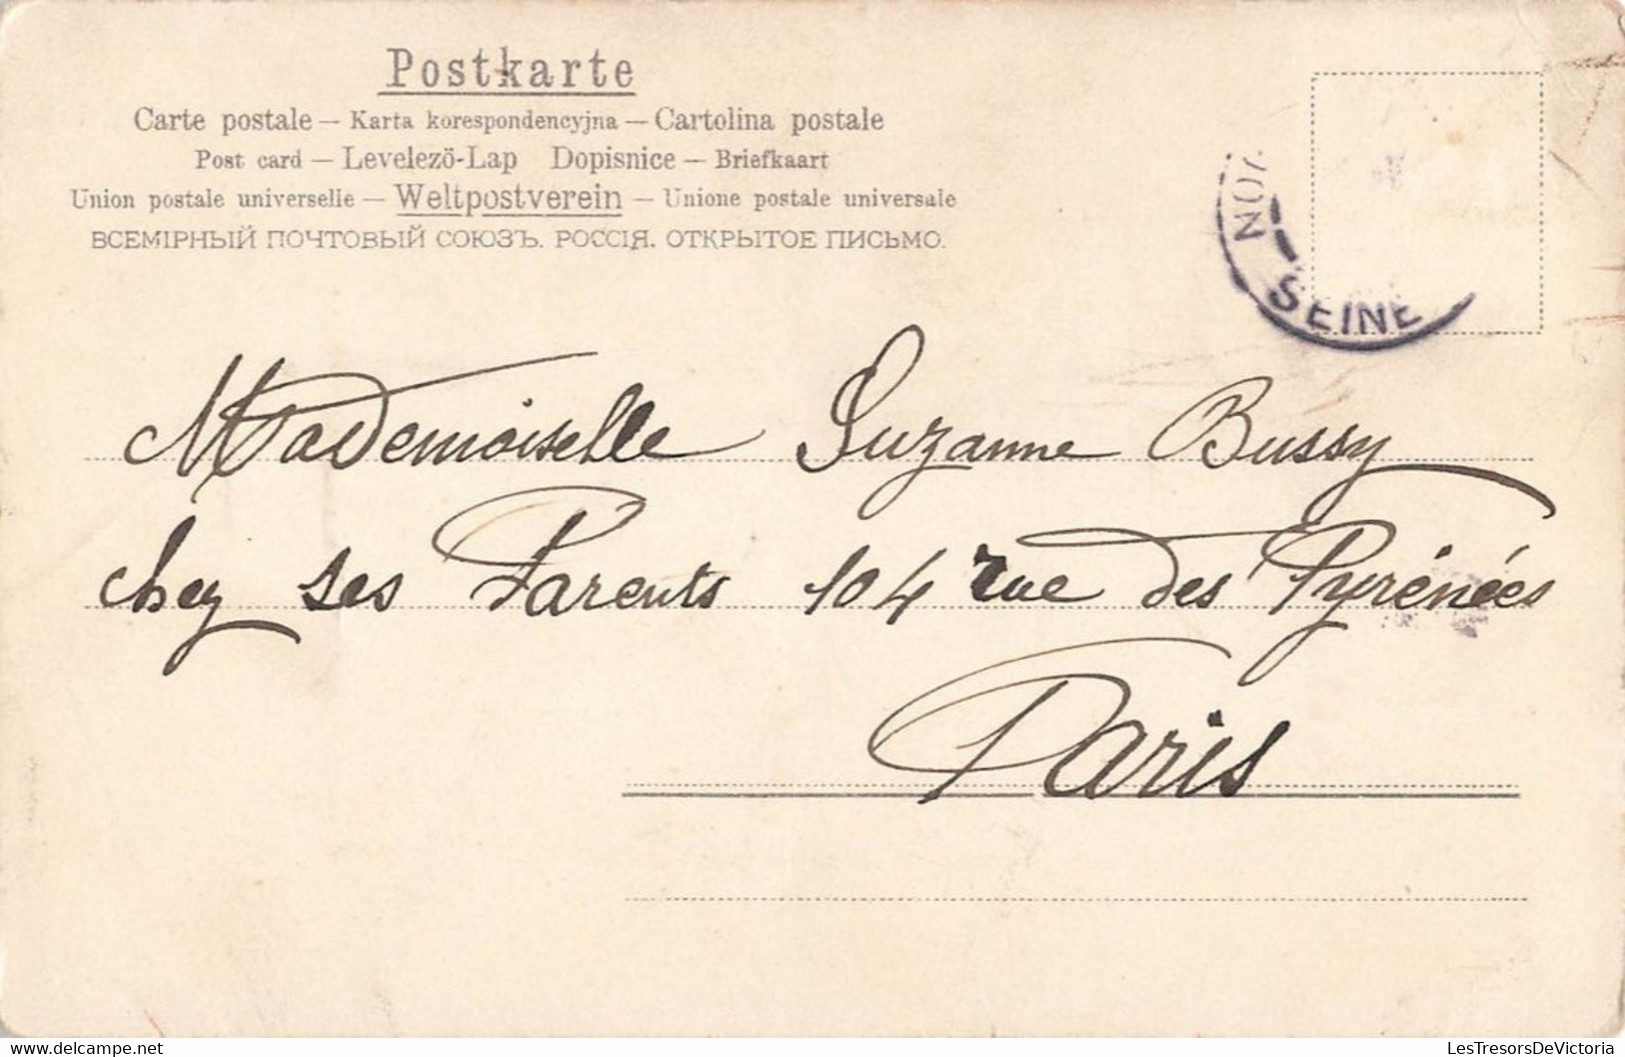 Postkarte
Carte postale — Karta korespondencyjna — Cartolina postale
Post card — Levelezö-Lap Dopisnice — Briefkaart
Union postale universelle — Weltpostverein — Unione postale universale
ВСЕМІРНЫЙ ПОЧТОВЫЙ СОЮЗЪ. РОССІЯ. ОТКРЫТОЕ ПИСЬМО.
SEINE
Mademoiselle Suzanne Bussy
chez ses Parents 104 rue des Pyrénées
Paris
LesTresorsDeVictoria